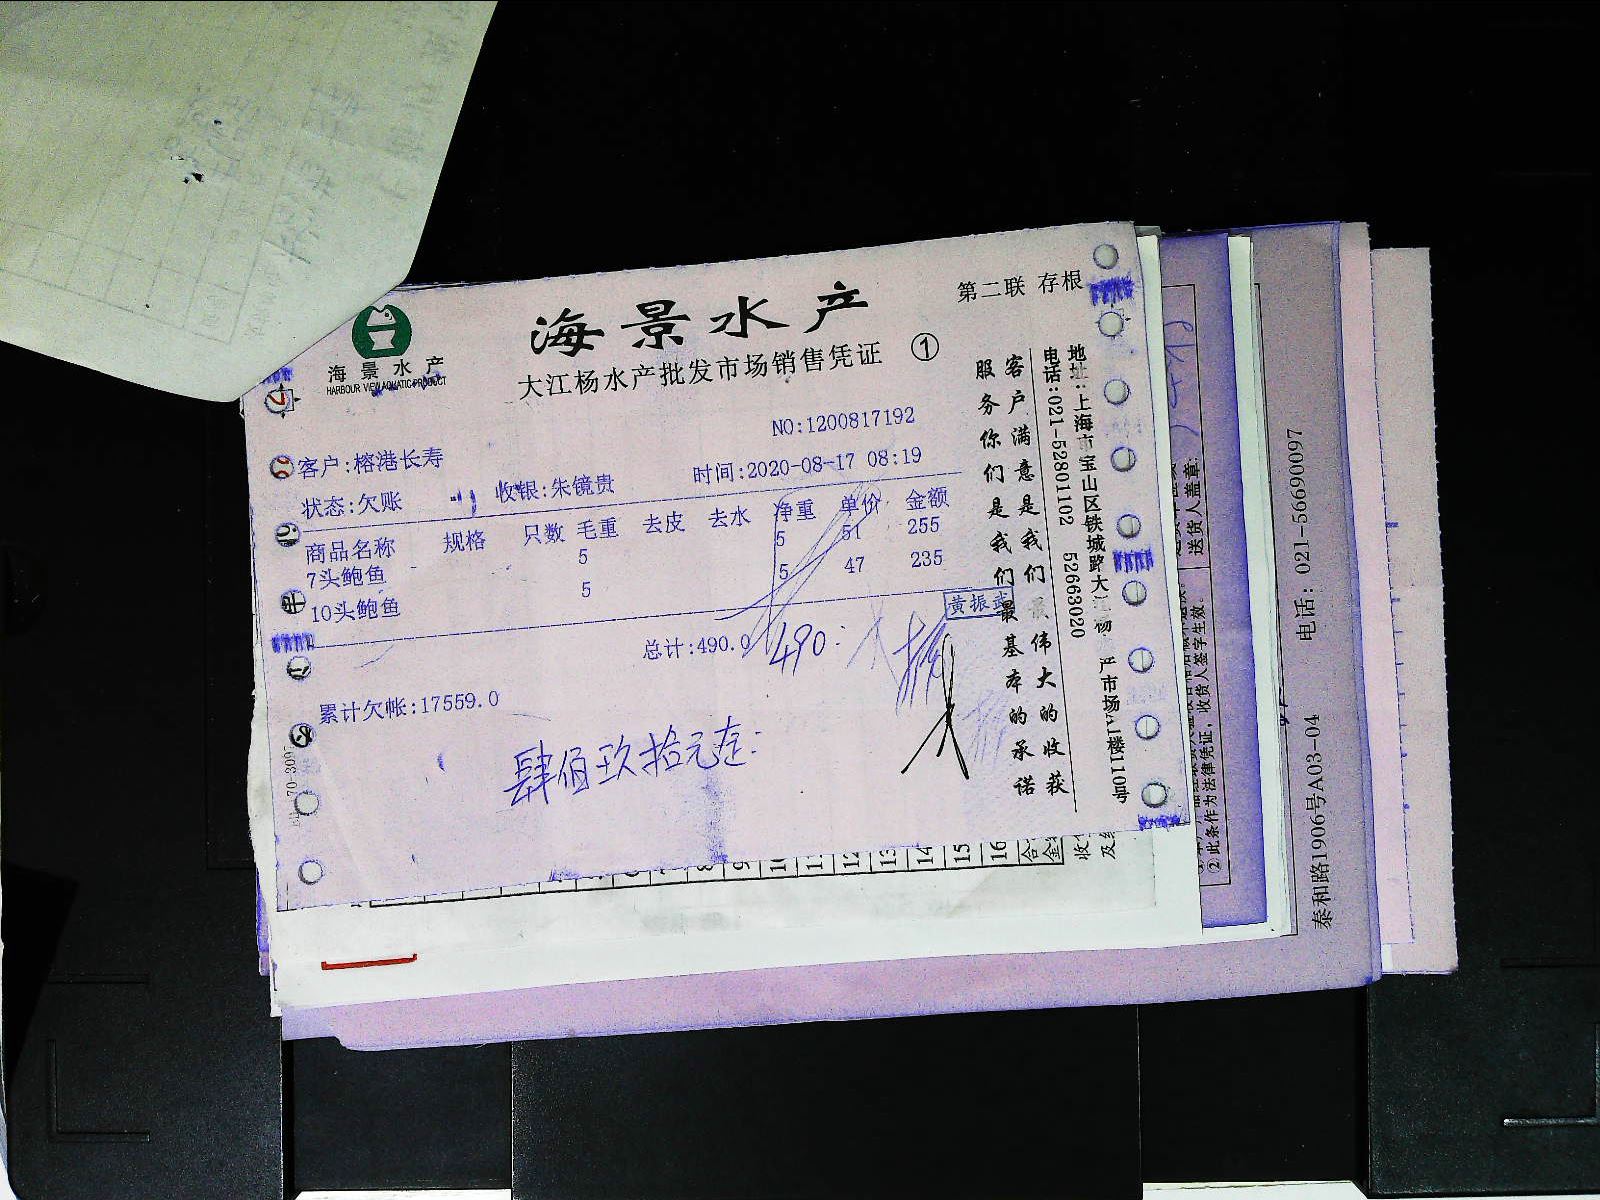 海景水产
HARBOUR VIEW AQUATIC PRODUCT
海景水产
大江杨水产批发市场销售凭证 ①
第二联 存根
NO:1200817192
客户:榕港长寿
时间:2020-08-17 08:19
状态:欠账 收银:朱镜贵
商品名称 规格 只数 毛重 去皮 去水 净重 单价 金额
7头鲍鱼 5 5 51 255
10头鲍鱼 5 5 47 235
总计:490.0
490
黄振武
累计欠帐:17559.0
肆佰玖拾元
客户满意是我们最伟大的收获
服务你们是我们最基本的承诺
地址:上海市宝山区铁城路大江杨 产市场A1楼1110号
电话:021-52801102 52663020
70-309
8
9
10
11
12
13
14
15
16
送货人盖章:
②此条作为法律凭证，收货人签字生效。
泰和路1906号A03-04 电话: 021-56690097